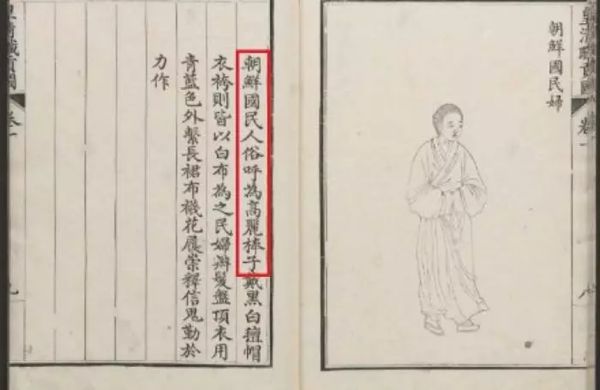 皇清職貢圖 卷一
朝鮮國民婦
八
朝鮮國民人俗呼為高麗棒子戴黑白氊帽
衣袴則皆以白布為之民婦辮髮盤頂衣用
青藍色外繫長裙布襪花履崇釋信鬼勤於
力作
皇清職貢圖 卷一
九